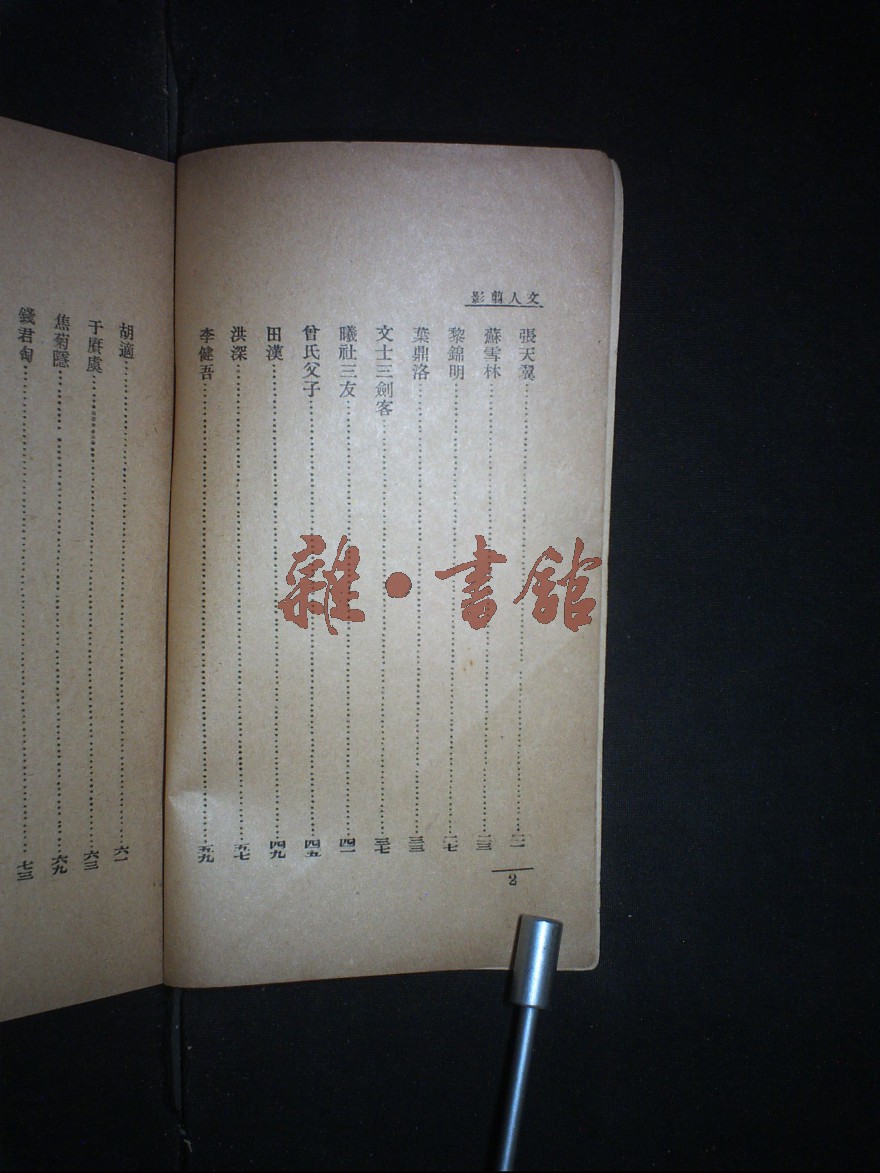 文人翦影
張天翼……二一
蘇雪林……二三
黎錦明……二七
葉鼎洛……三三
文士三劍客……三七
曦社三友……四一
曾氏父子……四五
田漢……四九
洪深……五七
李健吾……五九
2
胡適……六一
于賡虞……六三
焦菊隱……六九
錢君匋……七三
雜·書館